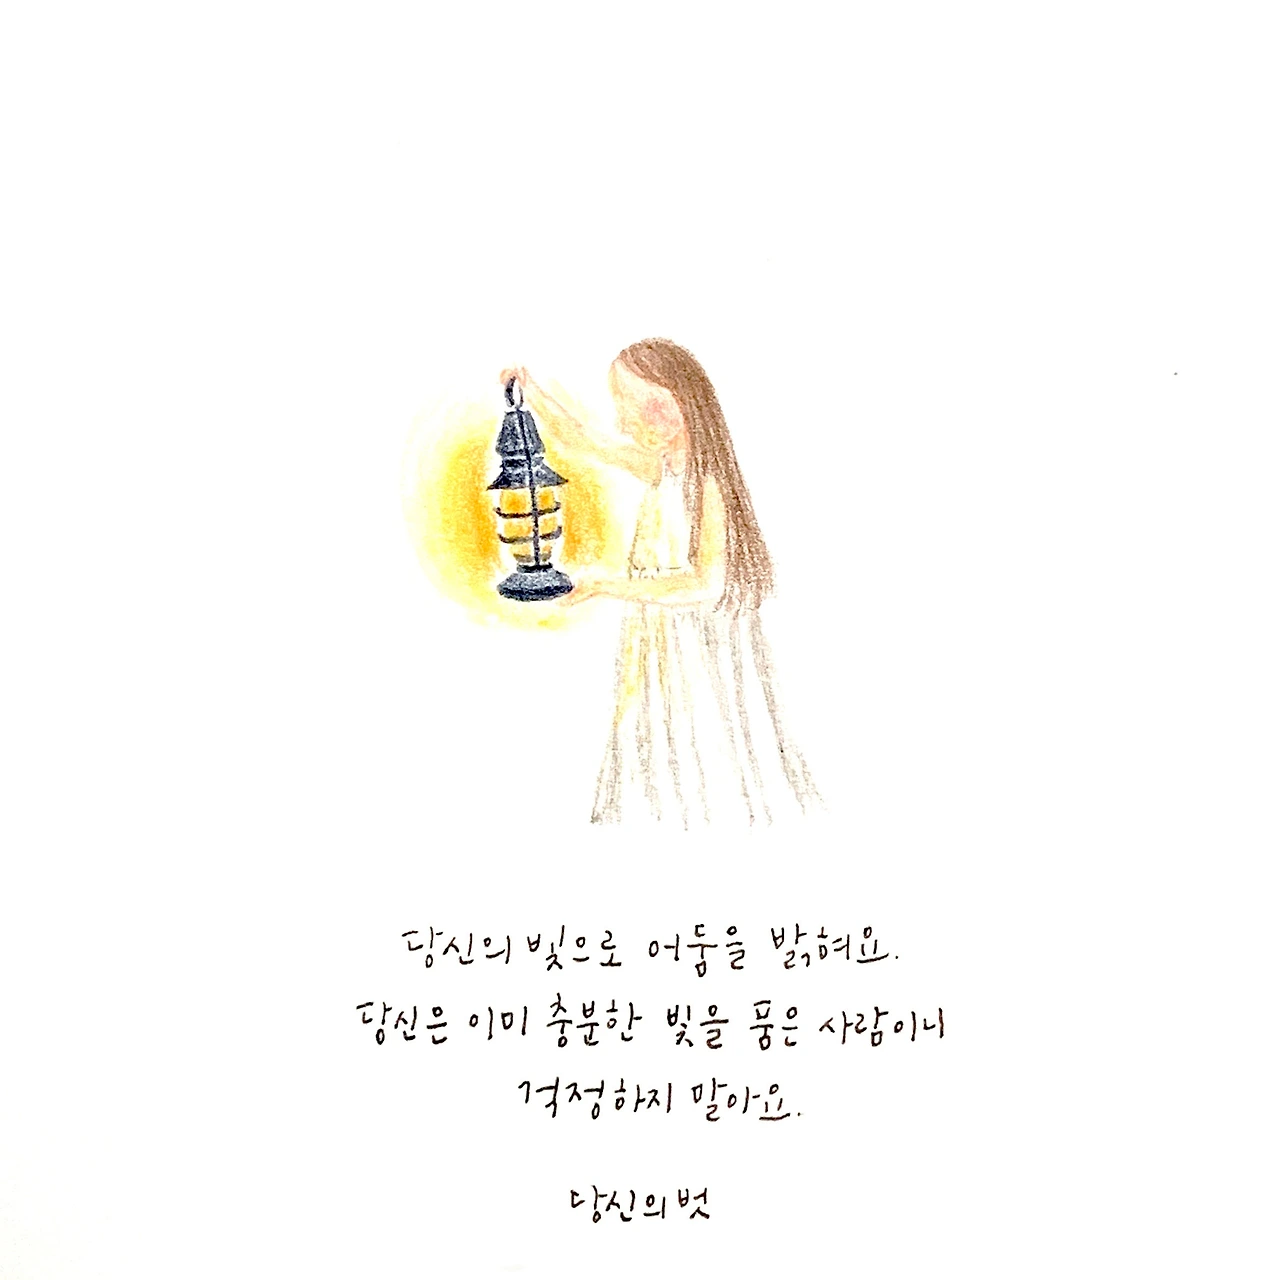 당신의 빛으로 어둠을 밝혀요.
당신은 이미 충분한 빛을 품은 사람이니
걱정하지 말아요.
당신의 벗